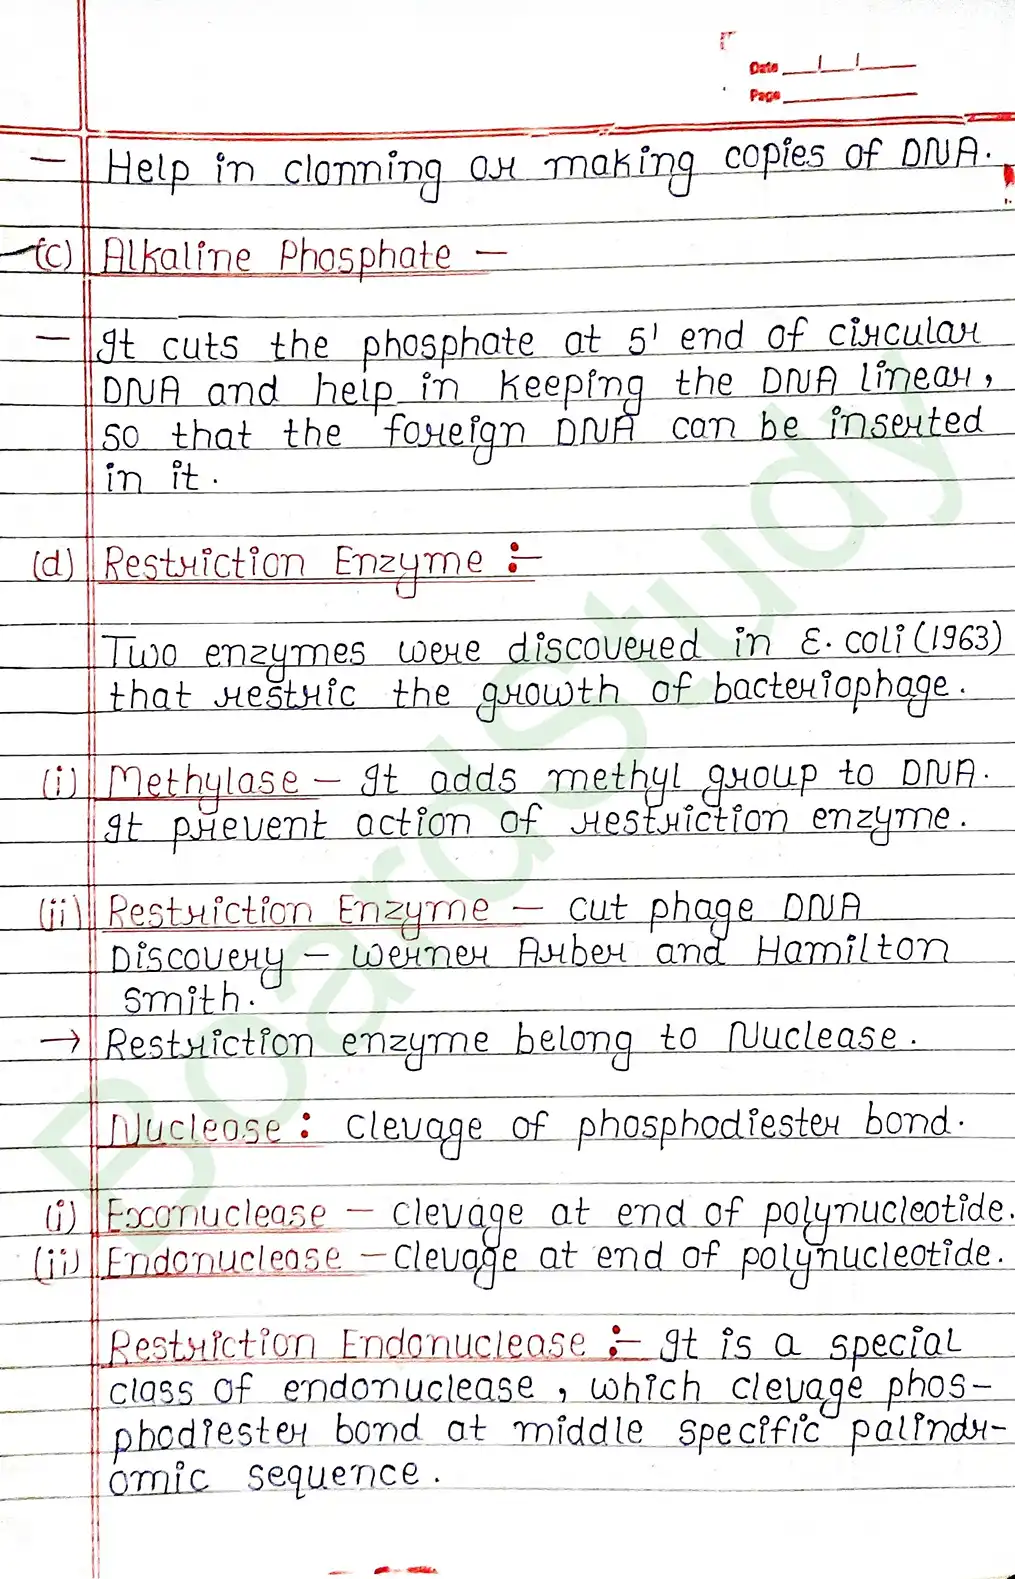 Date
Page
– Help in clonning or making copies of DNA.
(c) Alkaline Phosphate –
– It cuts the phosphate at 5' end of circular
DNA and help in keeping the DNA linear,
so that the foreign DNA can be inserted
in it.
(d) Restriction Enzyme :–
Two enzymes were discovered in E. coli (1963)
that restric the growth of bacteriophage.
(i) Methylase – It adds methyl group to DNA.
It prevent action of restriction enzyme.
(ii) Restriction Enzyme – cut phage DNA
Discovery – Werner Arber and Hamilton
Smith.
→ Restriction enzyme belong to Nuclease.
Nuclease : clevage of phosphodiester bond.
(i) Exonuclease – clevage at end of polynucleotide.
(ii) Endonuclease – clevage at end of polynucleotide.
Restriction Endonuclease :– It is a special
class of endonuclease, which clevage phos-
phodiester bond at middle specific palindr-
omic sequence.
BoardStudy